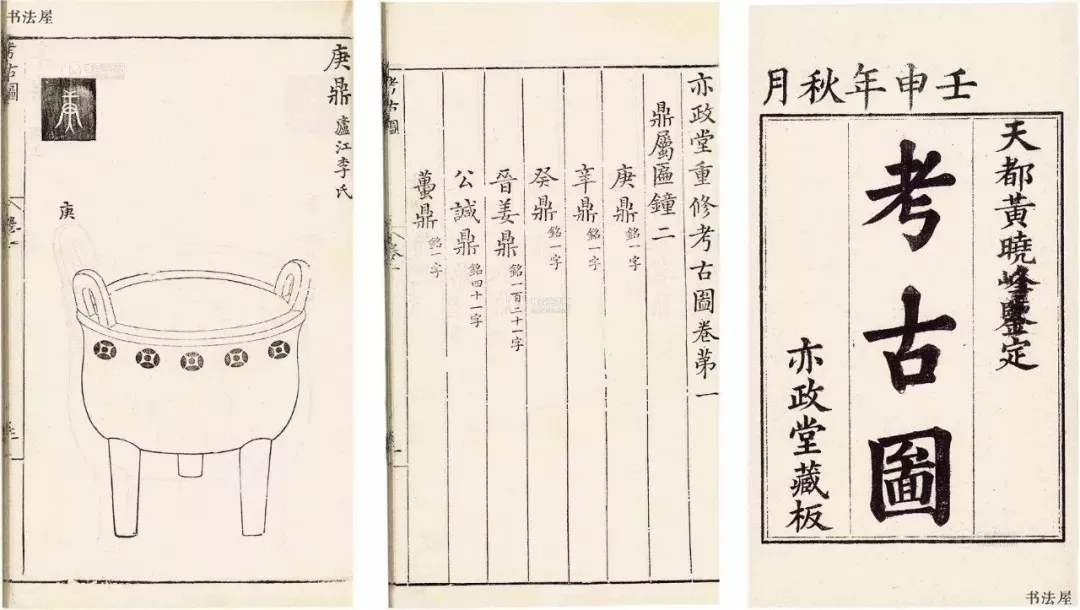 书法屋
考古圖
庚鼎 廬江李氏
庚
卷一
亦政堂重修考古圖卷第一
鼎屬匾鐘二
庚鼎 銘一字
辛鼎 銘一字
癸鼎 銘一字
晉姜鼎 銘一百二十一字
公諴鼎 銘四十一字
蠆鼎 銘一字
考古圖
卷一
壬申年秋月
天都黃曉峰鑒定
考古圖
亦政堂藏板
书法屋